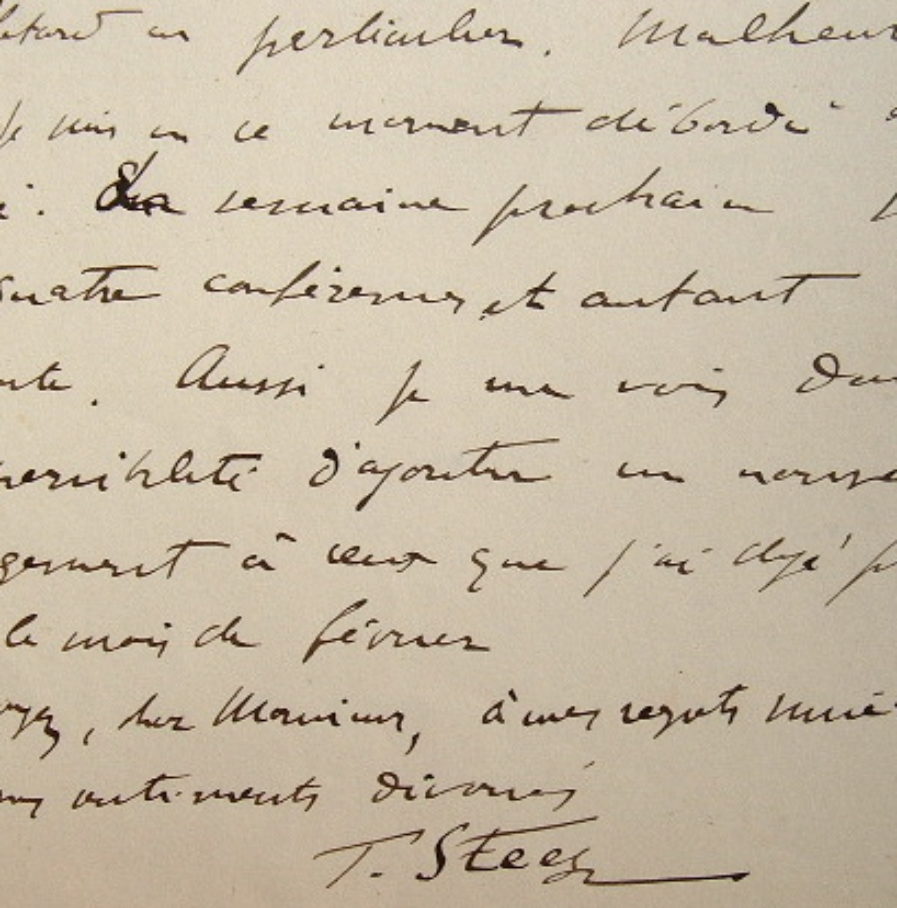 en particulier. Malheur
Je suis en ce moment débordé
La semaine prochain
quatre conférences et autant
Aussi je me vois dan
d'ajouter un nouve
gement à ceux que j'ai déjà p
le mois de février
, cher Monsieur, à mes regrets
sentiments dévoués
T. Steeg